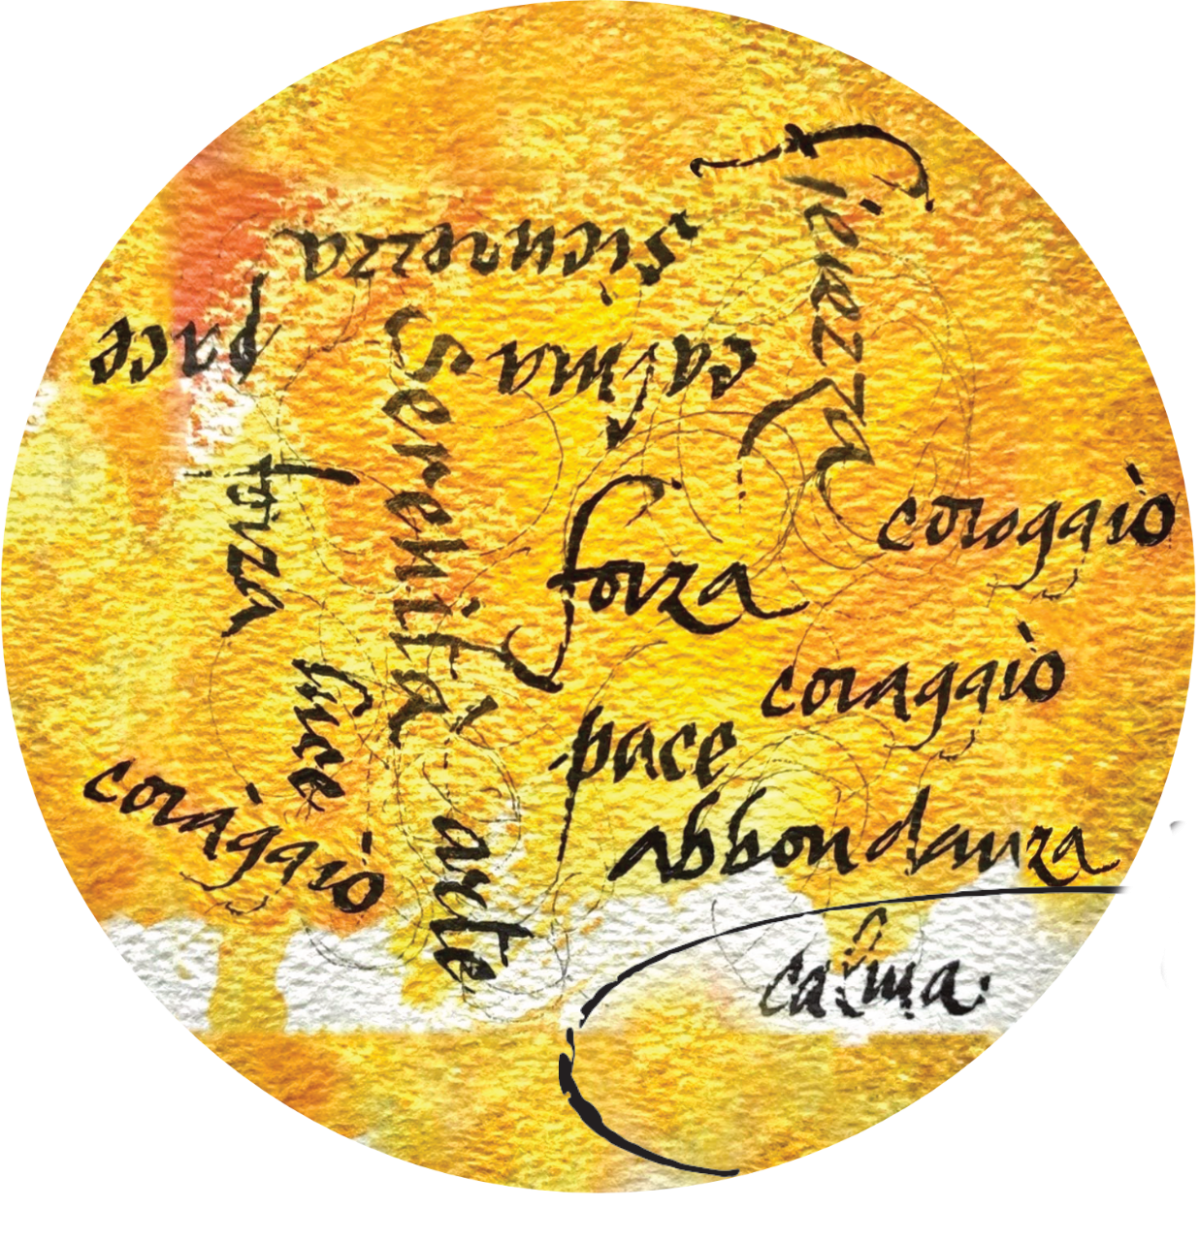 fierezza
sicurezza
pace
calma
serenità
forza
coroggiò
forza
luce
coraggiò
pace
coraggiò
abbondanza
arte
calma.